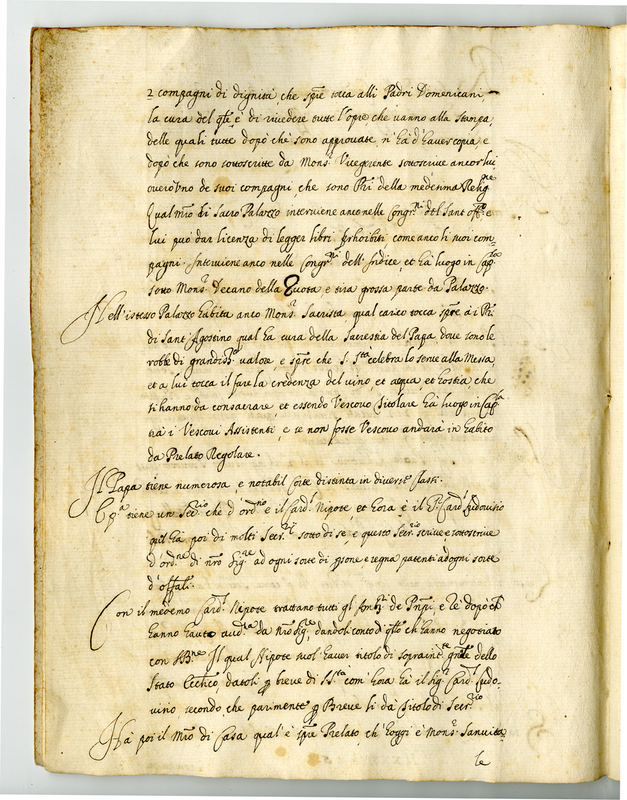 2 compagni di dignità, che spre tocca alli Padri Domenicani,
la cura del qle è di rivedere tutte l'opre che vanno alla stampa,
delle quali tutte dopò che sono approuate n'hà d'hauer copia, e
dopò che sono sottoscritte da Monsr Vicegerente sottoscrive ancor lui,
overo uno de suoi compagni, che sono Pri della medema Relige
Qual Mro di Sacro Palazzo interviene anco nelle Congrni del Sant'offo e
lui può dar licenza di legger libri prohibiti come anco li suoi com-
pagni. Interviene anco nelle Congrni dell'Indice, et hà luogo in Capla
sotto Monsr Decano della Ruota e tira grossa parte da Palazzo.
Nell'istesso Palazzo habita anco Monsr Sacrista qual carico tocca spre à i Pri
di Sant'Agostino qual hà cura della Sacrestia del Papa dove sono le
robbe di grandissmo valore, e spre che S. Sta celebra lo serve alla Messa,
et a lui tocca il fare la credenza del vino et acqua et hostia, che
si hanno da consacrare, et essendo Vescovo Titolare hà luogo in Capla
trà i Vescovi Assistenti, e se non fosse Vescovo andarà in habito
da Prelato Regolare.
Il Papa tiene numerosa, e notabil Corte distinta in diverse
tiene un Secrio che d'ordrio è il Cardl Nipote, et hora è il Sr Cardl Ludovisio
qual hà poi di molti Secrri sotto di se, e questo Secrio scrive e sottoscrive
d'ordne di nro Sigre ad ogni sorte di psone e segna patenti ad ogni sorte
d'offali.
Con il medemo Cardl Nipote trattano tutti gl'Ambri de Pnpi, e
hanno hauto audza da Nro Sigre, dandoli conto di qllo ch'hanno negotiato
con S. Bne. Il qual Nipote suol haver titolo di sopraintte gnle dello
Stato Ecclico, datoli p breve di S. Sta com'hora hà il Sigr Cardl Ludo-
visio secondo che parimente p Breve li dà titolo di Secrrio
Hà poi il Mro di Casa qual'è spre Prelato, ch'hoggi è Monsr Sanvitale
le